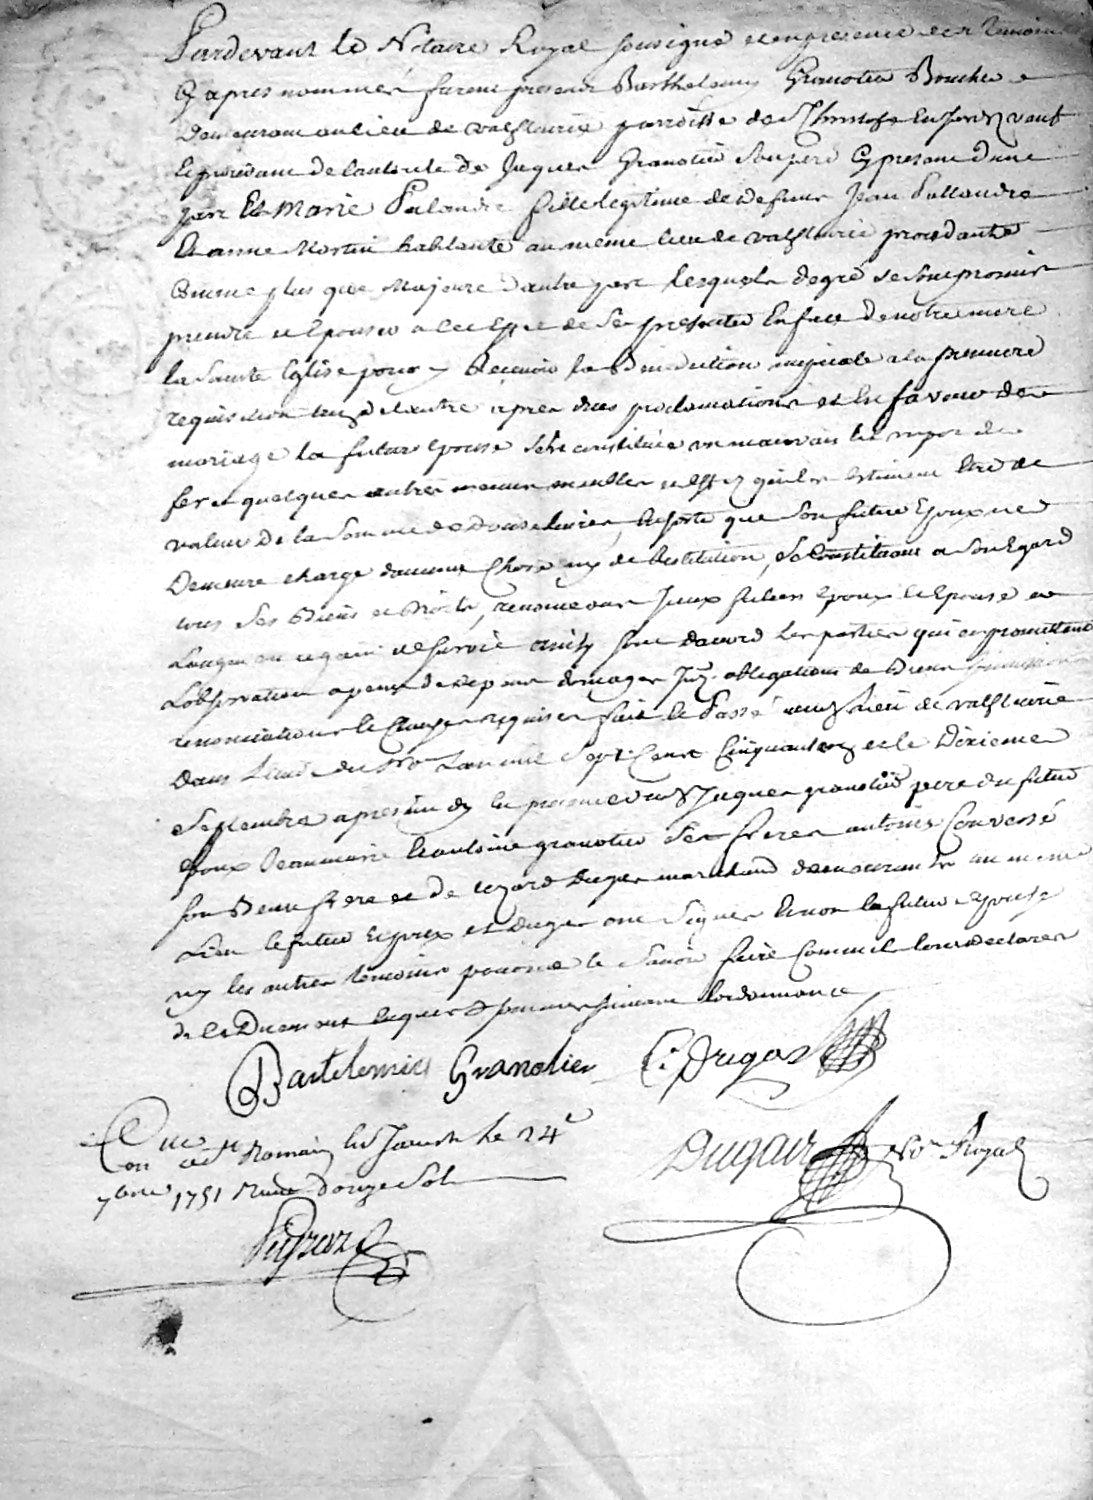 Pardevant le Notaire Royal soussigné et en presence des temoins
Cy apres nommés furent presens Barthelemy Granotier Boucher
demeurant au lieu de valfleurie parroisse de St Christofle En Jarez
procedant de l'authorité de Jaques Granotier son pere Cy present d'une
part Et Marie Palandre fille legitime de defunt Jean Pallandre
Et anne Martin habitante au meme lieu de valfleurie procedante
Comme plus que Majeure d'autre part lesquels de gré se sont promis
prendre et Epouser a cet effet de se presenter En face de notre mere
la Sainte Eglise pour y Recevoir la Benediction nuptiale a la premiere
requisition de l'autre apres dues proclamations et En faveur de
mariage la future epouse s'est constituée un mauvais lit
fer et quelques autres menus meubles qu'ils estiment Etre de
valeur de la somme de douze livres, de sorte que son futur Epoux ne
demeure chargé d'aucune chose de Restitution, se Constituant a son Egard
tous ses Biens et Droits, renonceant iceux futurs epoux et Epouse
gain de survie ainsy sont d'acord les parties qui en promettent
L'observation a peine de depens domages obligations de Biens soumissions
renonciations et Clauses requises fait et Passé audit lieu de valfleurie
dans l'etude du Nore L'an mille Sept Cent Cinquante et un et le Dixieme
Septembre apres midy En presence de Jaques granotier pere du futur
Epoux Jeanmarie et antoine granotier ses freres antoine Couversé
son Beau frere et de Dugas marchand demeurants au meme
Lieu le futur Epoux et Dugas ont signés et non la future Epouse
ny les autres temoins pour ne le savoir faire Comme ils l'ont declarés
de ce Duement Enquis et sommés suivant l'ordonnance
Bartelemies Granotier C: Dugas
Con llé a St Romain En Jarest le 24e
7bre 1751 Reçu douze Sols
Dugas Nore Royal